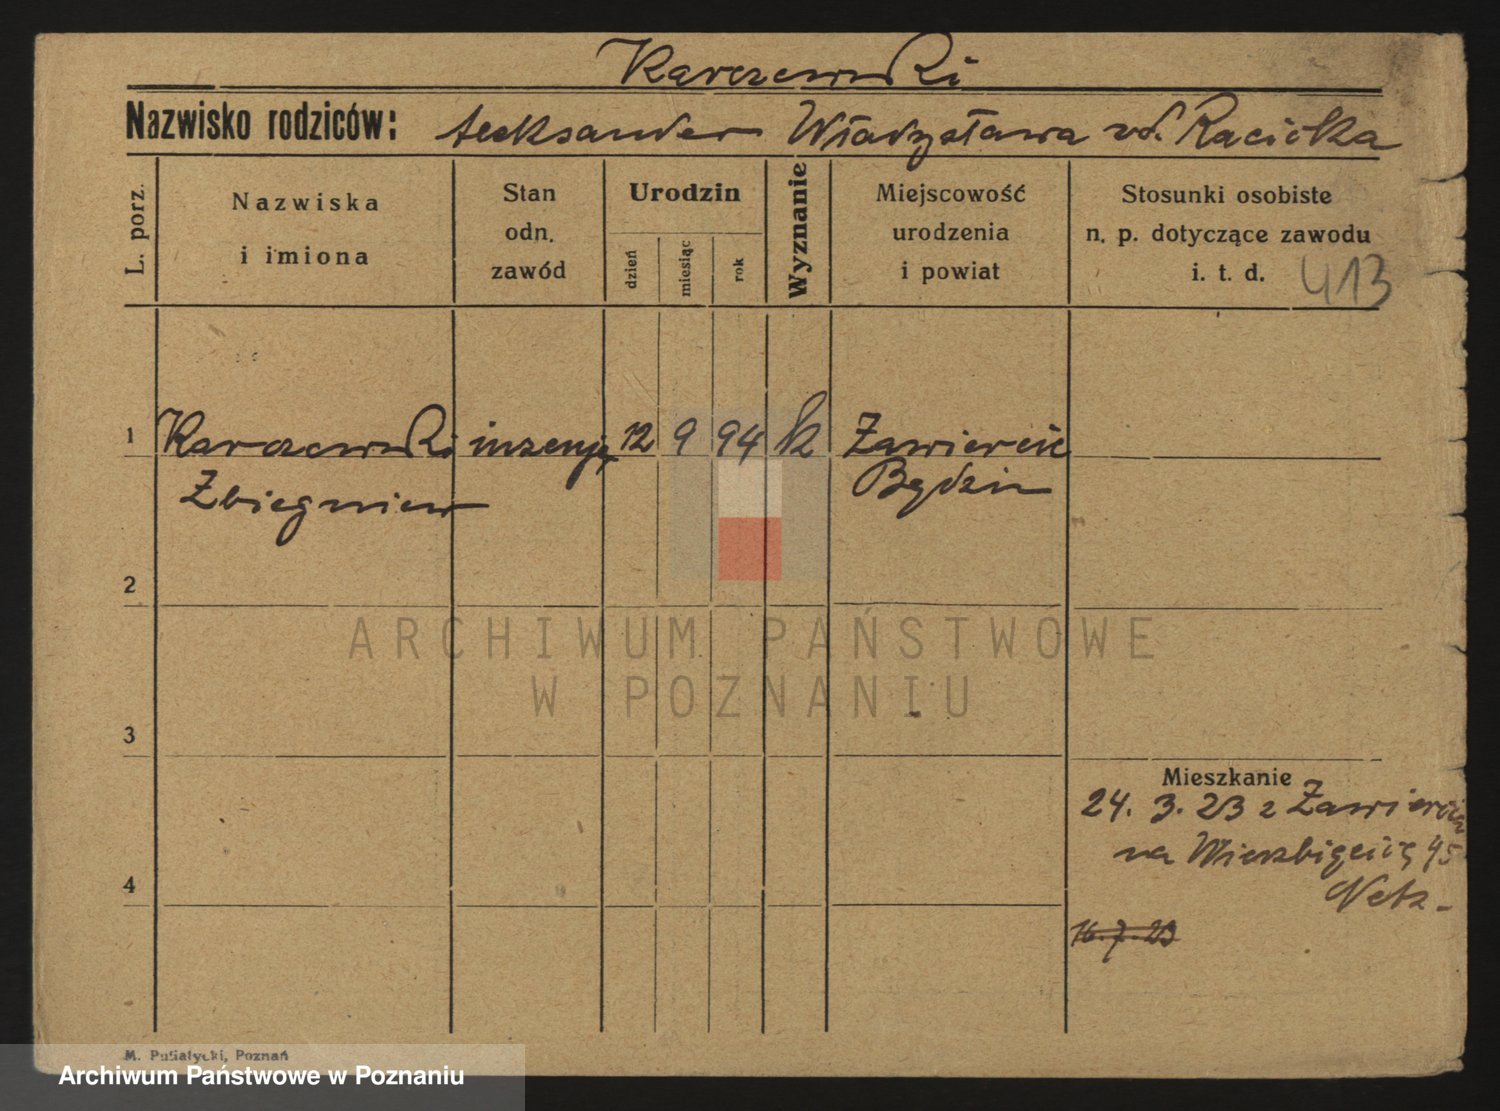 Karczewski
Nazwisko rodziców: Aleksander Władysława vd. Raciolka
L. porz.
Nazwiska
i imiona
Stan
odn.
zawód
Urodzin
dzień
miesiąc
rok
Wyznanie
Miejscowość
urodzenia
i powiat
Stosunki osobiste
n. p. dotyczące zawodu
i. t. d.
413
1 Karczewski inżenje 12 9 94 k Zawiercie
Zbiegniew Będzin
2
3
4
ARCHIWUM PAŃSTWOWE
W POZNANIU
Mieszkanie
24. 3. 23 z Zawiercia
na Wierzbięcice 45
Netz-
16.7.23
M. Pusiałycki, Poznań
Archiwum Państwowe w Poznaniu